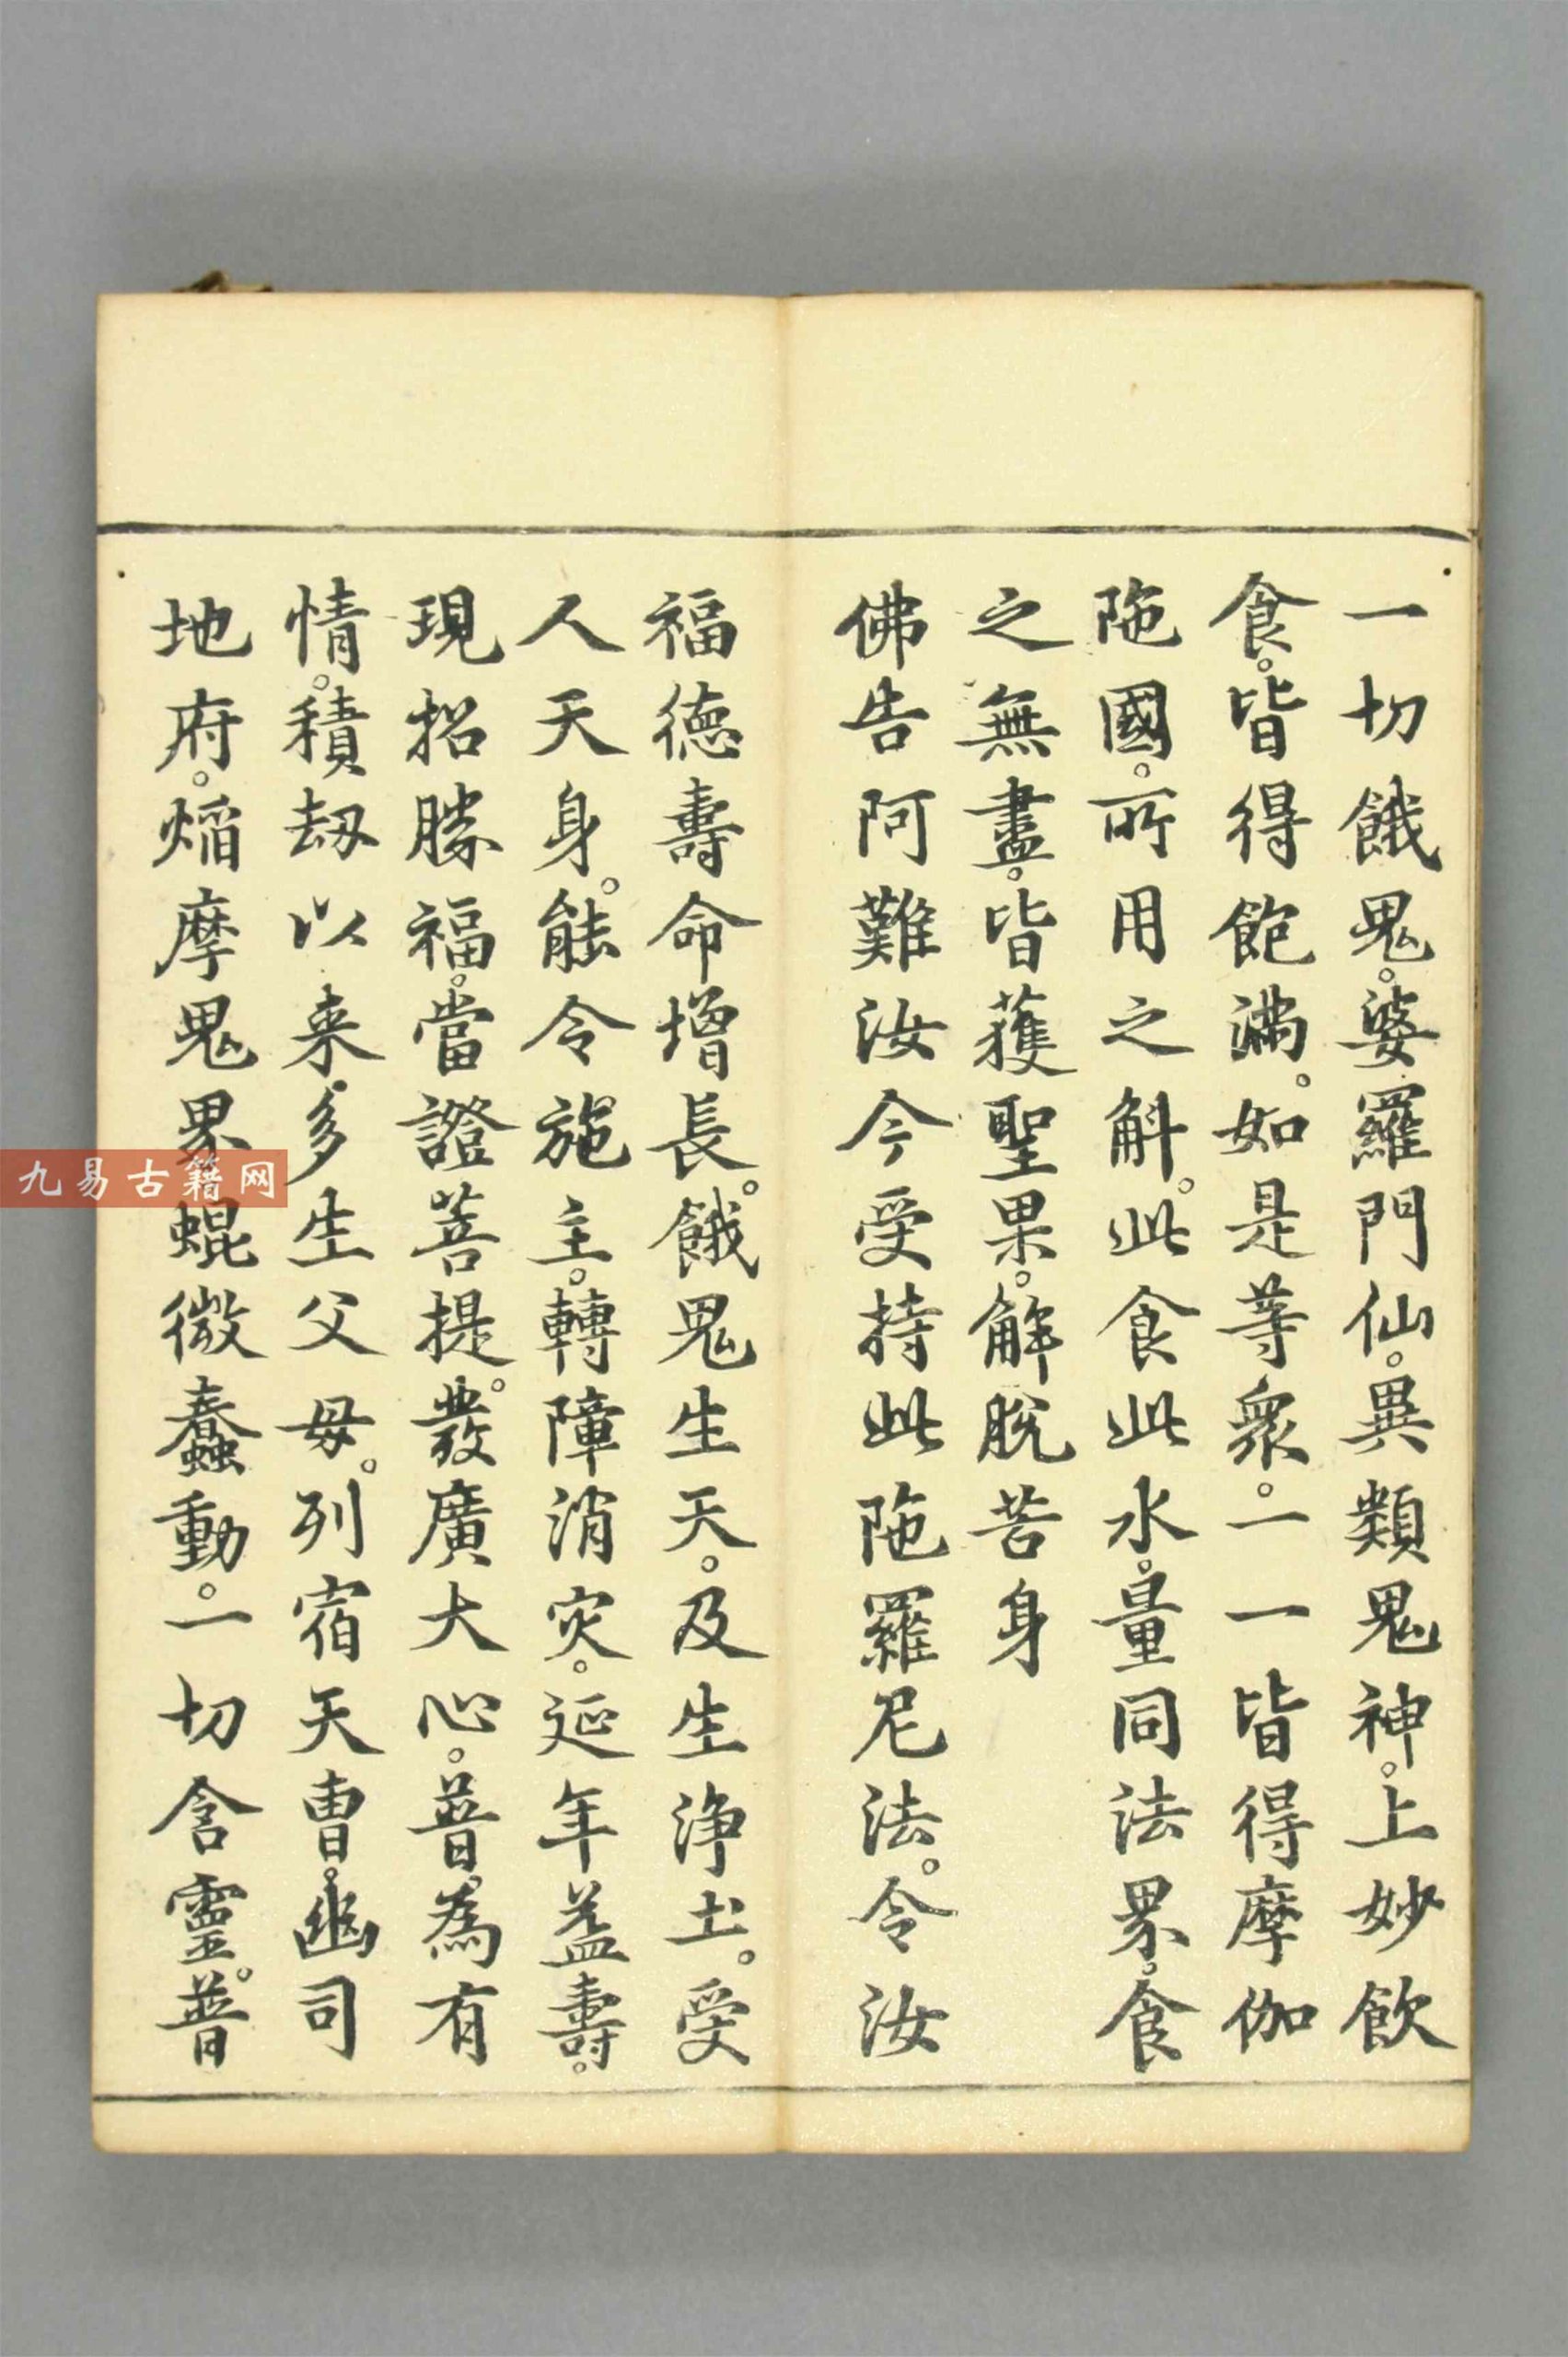 一切餓鬼。婆羅門仙。異類鬼神。上妙飲
食。皆得飽滿。如是等衆。一一皆得摩伽
陁國。所用之斛。此食此水。量同法界。食
之無盡。皆獲聖果。解脫苦身
佛告阿難汝今受持此陁羅尼法。令汝
福德壽命增長。餓鬼生天。及生淨土。受
人天身。能令施主。轉障消灾。延年益壽。
現招勝福。當證菩提。發廣大心。普為有
情。積劫以来。多生父母。列宿天曹。幽司
地府。焰摩鬼界。蜫微蠢動。一切含靈。普
九易古籍网